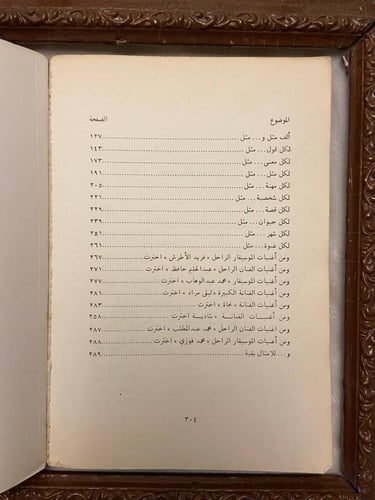 الموضوع الصفحة
ألف مثل و... مثل ١٢٧
لكل قول... مثل ١٤٣
لكل معنى... مثل ١٧٣
لكل مثل... مثل ١٩١
لكل مهنة... مثل ٢٠٥
لكل شخصية... مثل ٢٢١
لكل قصة... مثل ٢٢٩
لكل حيوان... مثل ٢٣٩
لكل شهر... مثل ٢٥١
لكل غنوة... مثل ٢٦١
ومن أغنيات الموسيقار الراحل «فريد الأطرش» اخترت ٢٦٧
ومن أغنيات الفنان الراحل «عبد الحليم حافظ» اخترت ٢٧١
ومن أغنيات الموسيقار «محمد عبد الوهاب» اخترت ٢٧٧
ومن أغنيات الفنانة الكبيرة «ليلى مراد» اخترت ٢٨١
ومن أغنيات الفنانة «نجاة» اخترت ٢٨٣
ومن أغنيات الفنانة «شادية» اخترت ٢٥٨
ومن اغنيات الفنان الراحل «محمد عبد المطلب» اخترت ٢٨٧
ومن أغنيات الموسيقار الراحل «محمد فوزي» اخترت ٢٨٨
و... للأمثال بقية ٢٨٩
٣٠٤